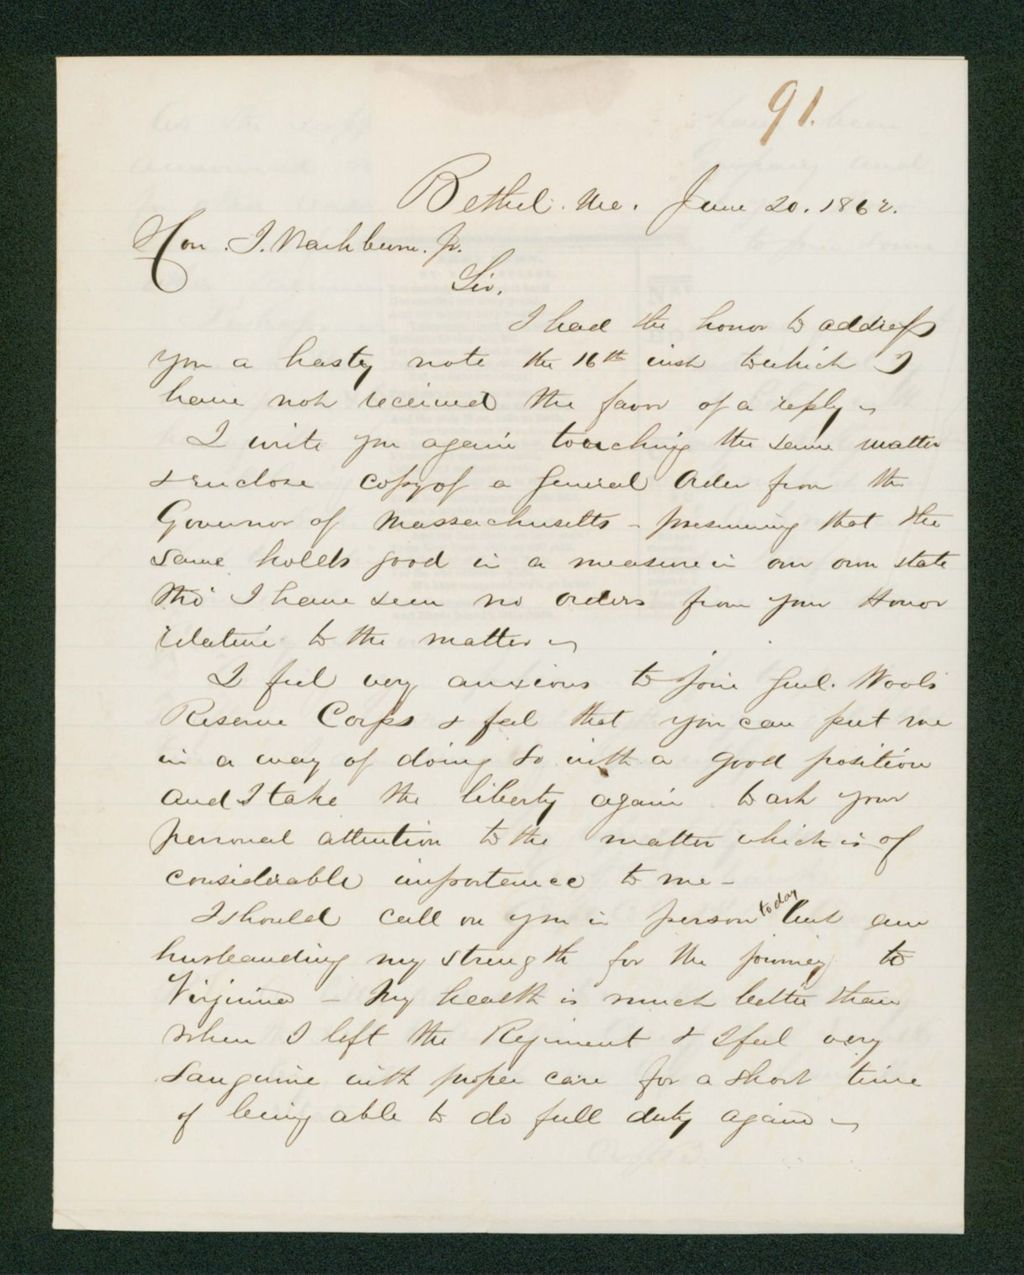 91.
Bethel. Me. June 20. 1862.
Hon. I. Washburn. Jr.
Sir,
I had the honor to address
you a hasty note the 16th inst to which I
have not received the favor of a reply -
I write you again touching the same matter
& enclose copy of a General Order from the
Governor of Massachusetts - presuming that the
same holds good in a measure in our own state
tho' I have seen no orders from your Honor
relative to the matter -
I feel very anxious to join Genl. Wools
Reserve Corps & feel that you can put me
in a way of doing so with a good position
and I take the liberty again to ask your
personal attention to the matter which is of
considerable importance to me -
I should call on you in person today but am
husbanding my strength for the journey to
Virginia - My health is much better than
when I left the Regiment & I feel very
sanguine with proper care for a short time
of being able to do full duty again -